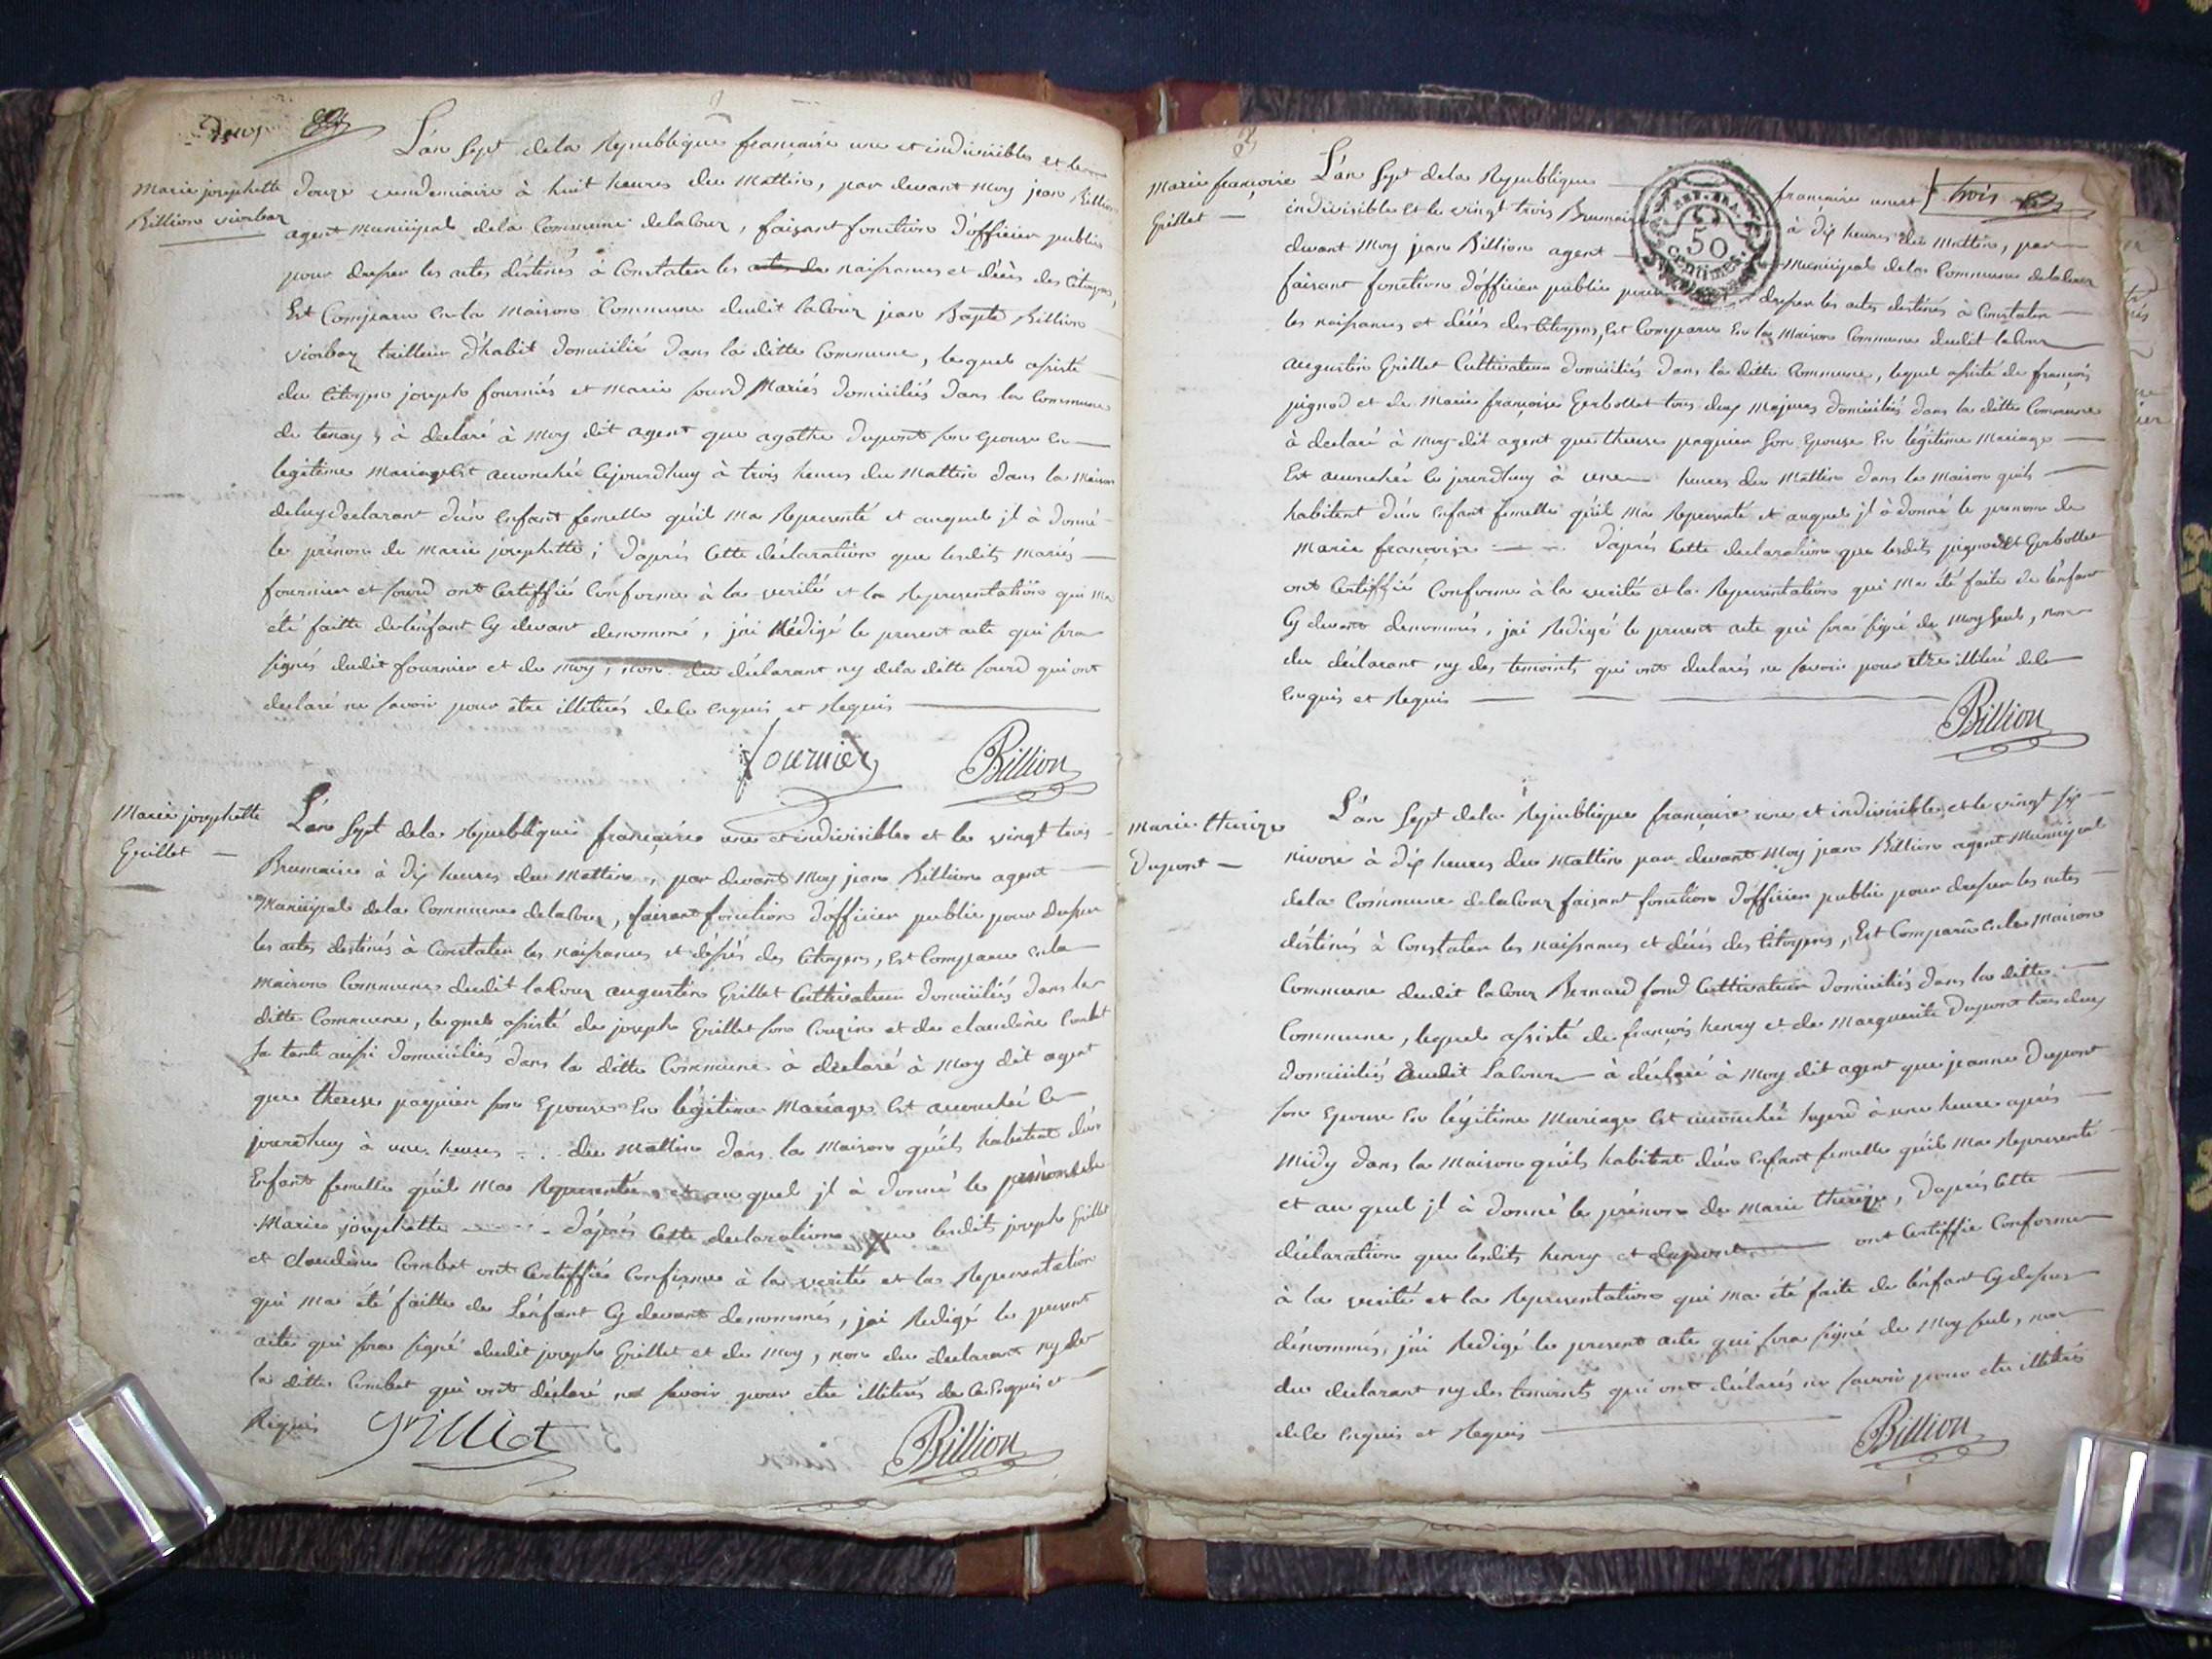 deux
L'an sept de la Republique francaise une et indivisible et le
Marie josephette
Billion
douze vendemiaire à huit heures du Mattin, par devant Moy jean Billion
agent Municipal de la Commune de la Cour, faisant fonction d'officier public
pour dresser les actes déstinés à Constater les naissances et décès des Citoyens,
Est Comparu en la Maison Commune dudit la Cour jean Bapte Billion
tailleur d'habit domicilié dans la ditte Commune, lequel assisté
du Citoyen joseph fourniés et Marie sourd Mariés domiciliés dans la Commune
de tenay, à déclaré à Moy dit agent que agathe dupont son Epouse en
legitime Mariage Est accouchée Cejourdhuy à trois heures du Mattin dans la Maison
deluy declarant d'un Enfant femelle qu'il Ma Representé et auquel jl à donné
le prénom de Marie josephette ; d'après Cette déclaration que lesdits Mariés
fournier et sourd ont Certiffié Conforme à la verité et la Representation qui Ma
été faitte de l'enfant Cy devant denommé, j'ai Rédigé le present acte qui sera
signés dudit fournier et de Moy ; non du déclarant ny dela ditte sourd qui ont
declaré ne savoir pour être illiterés de Ce Enquis et Requis
fournier Billion
Marie josephette
Grillet
L'an sept de la Republique française une et indivisible et le vingt trois
Brumaire à dix heures du Mattin, par devant Moy jean Billion agent
Municipal de la Commune de la Cour, faisant fonction d'officier public pour dresser
les actes destinés à Constater les naissances et décés des Citoyens, Est Comparu en la
Maison Commune dudit la Cour augustin Grillet Cultivateur domiciliés dans la
ditte Commune, lequel assisté de joseph Grillet son Cousin et de claudine Combet
sa tante aussi domiciliés dans la ditte Commune à déclaré à Moy dit agent
que therese paquier son Epouse En légitime Mariage Est accouchée Ce
jourdhuy à une heures du Mattin dans la Maison qu'ils habitent d'un
Enfant femelle qu'il Ma Representé et au quel jl à donné le prénom de
Marie josephette d'après Cette declaration que lesdits joseph Grillet
et claudine Combet ont Certiffié Conforme à la verité et la Representation
qui Ma été faitte de L'enfant Cy devant denommés, j'ai Redigé le present
acte qui sera signé dudit joseph Grillet et de Moy, non du declarant ny de
la ditte Combet qui ont déclaré ne savoir pour etre illiterés de Ce Enquis et
Requis Grilliet Billion
Marie françoise
Grillet
L'an sept de la Republique francaise une et trois
indivisible et le vingt trois Brumaire à dix heures du Mattin, par
50
Centimes.
devant Moy jean Billion agent Municipal de la Commune de la Cour
faisant fonction d'officier public pour dresser les actes destinés à Constater
les naissances et décés des Citoyens, Est Comparu En la Maison Commune dudit la Cour
augustin Grillet Cultivateur domiciliés dans la ditte Commune, lequel assisté de françois
pignod et de Marie françoise Gerbollet tous deux Majeurs domiciliés dans la ditte Commune
à declaré à Moy dit agent que therese paquier son Epouse En légitime Mariage
Est accouchée Ce jourdhuy à une heures du Mattin dans la Maison quils
habitent d'un Enfant femelle qu'il Ma Representé et auquel jl à donné le prenom de
Marie françoise d'après Cette declaration que lesdits pignod et Gerbollet
ont Certiffié Conforme à la verité et la Representation qui Ma été faite de l'enfant
Cy devant denommés, j'ai Redigé le present acte qui sera signé de Moy seul, non
du déclarant ny des temoints qui ont declarés ne savoir pour etre illiteré de Ce
Enquis et Requis
Billion
Marie therize
Dupont
L'an sept de la Republique française une et indivisible, et le vingt six
nivose à dix heures du Mattin par devant Moy jean Billion agent Municipal
de la Commune de la Cour faisant fonction d'officier public pour dresser les actes
déstinés à Constater les naissances et décés des Citoyens, Est Comparu En la Maison
Commune dudit la Cour Bernard fond Cultivateur domiciliés dans la ditte
Commune, lequel assisté de françois henry et de Marguerite Dupont tous deux
domiciliés dudit La Cour à déclaré à Moy dit agent que jeanne Dupont
son Epouse En légitime Mariage Est accouchée à une heure après
Midy dans la Maison qu'ils habitent d'un Enfant femelle qu'il Ma Representé
et au quel jl à donné le prénom de Marie therize, d'après Cette
déclaration que lesdits henry et dupont ont Certiffié Conforme
à la verité et la Representation qui Ma été faite de l'enfant Cy dessus
dénommés, j'ai Redigé le present acte qui sera signé de Moy seul, non
du declarant ny des temoints qui ont déclarés ne savoir pour etre illitérés
de Ce Enquis et Requis
Billion